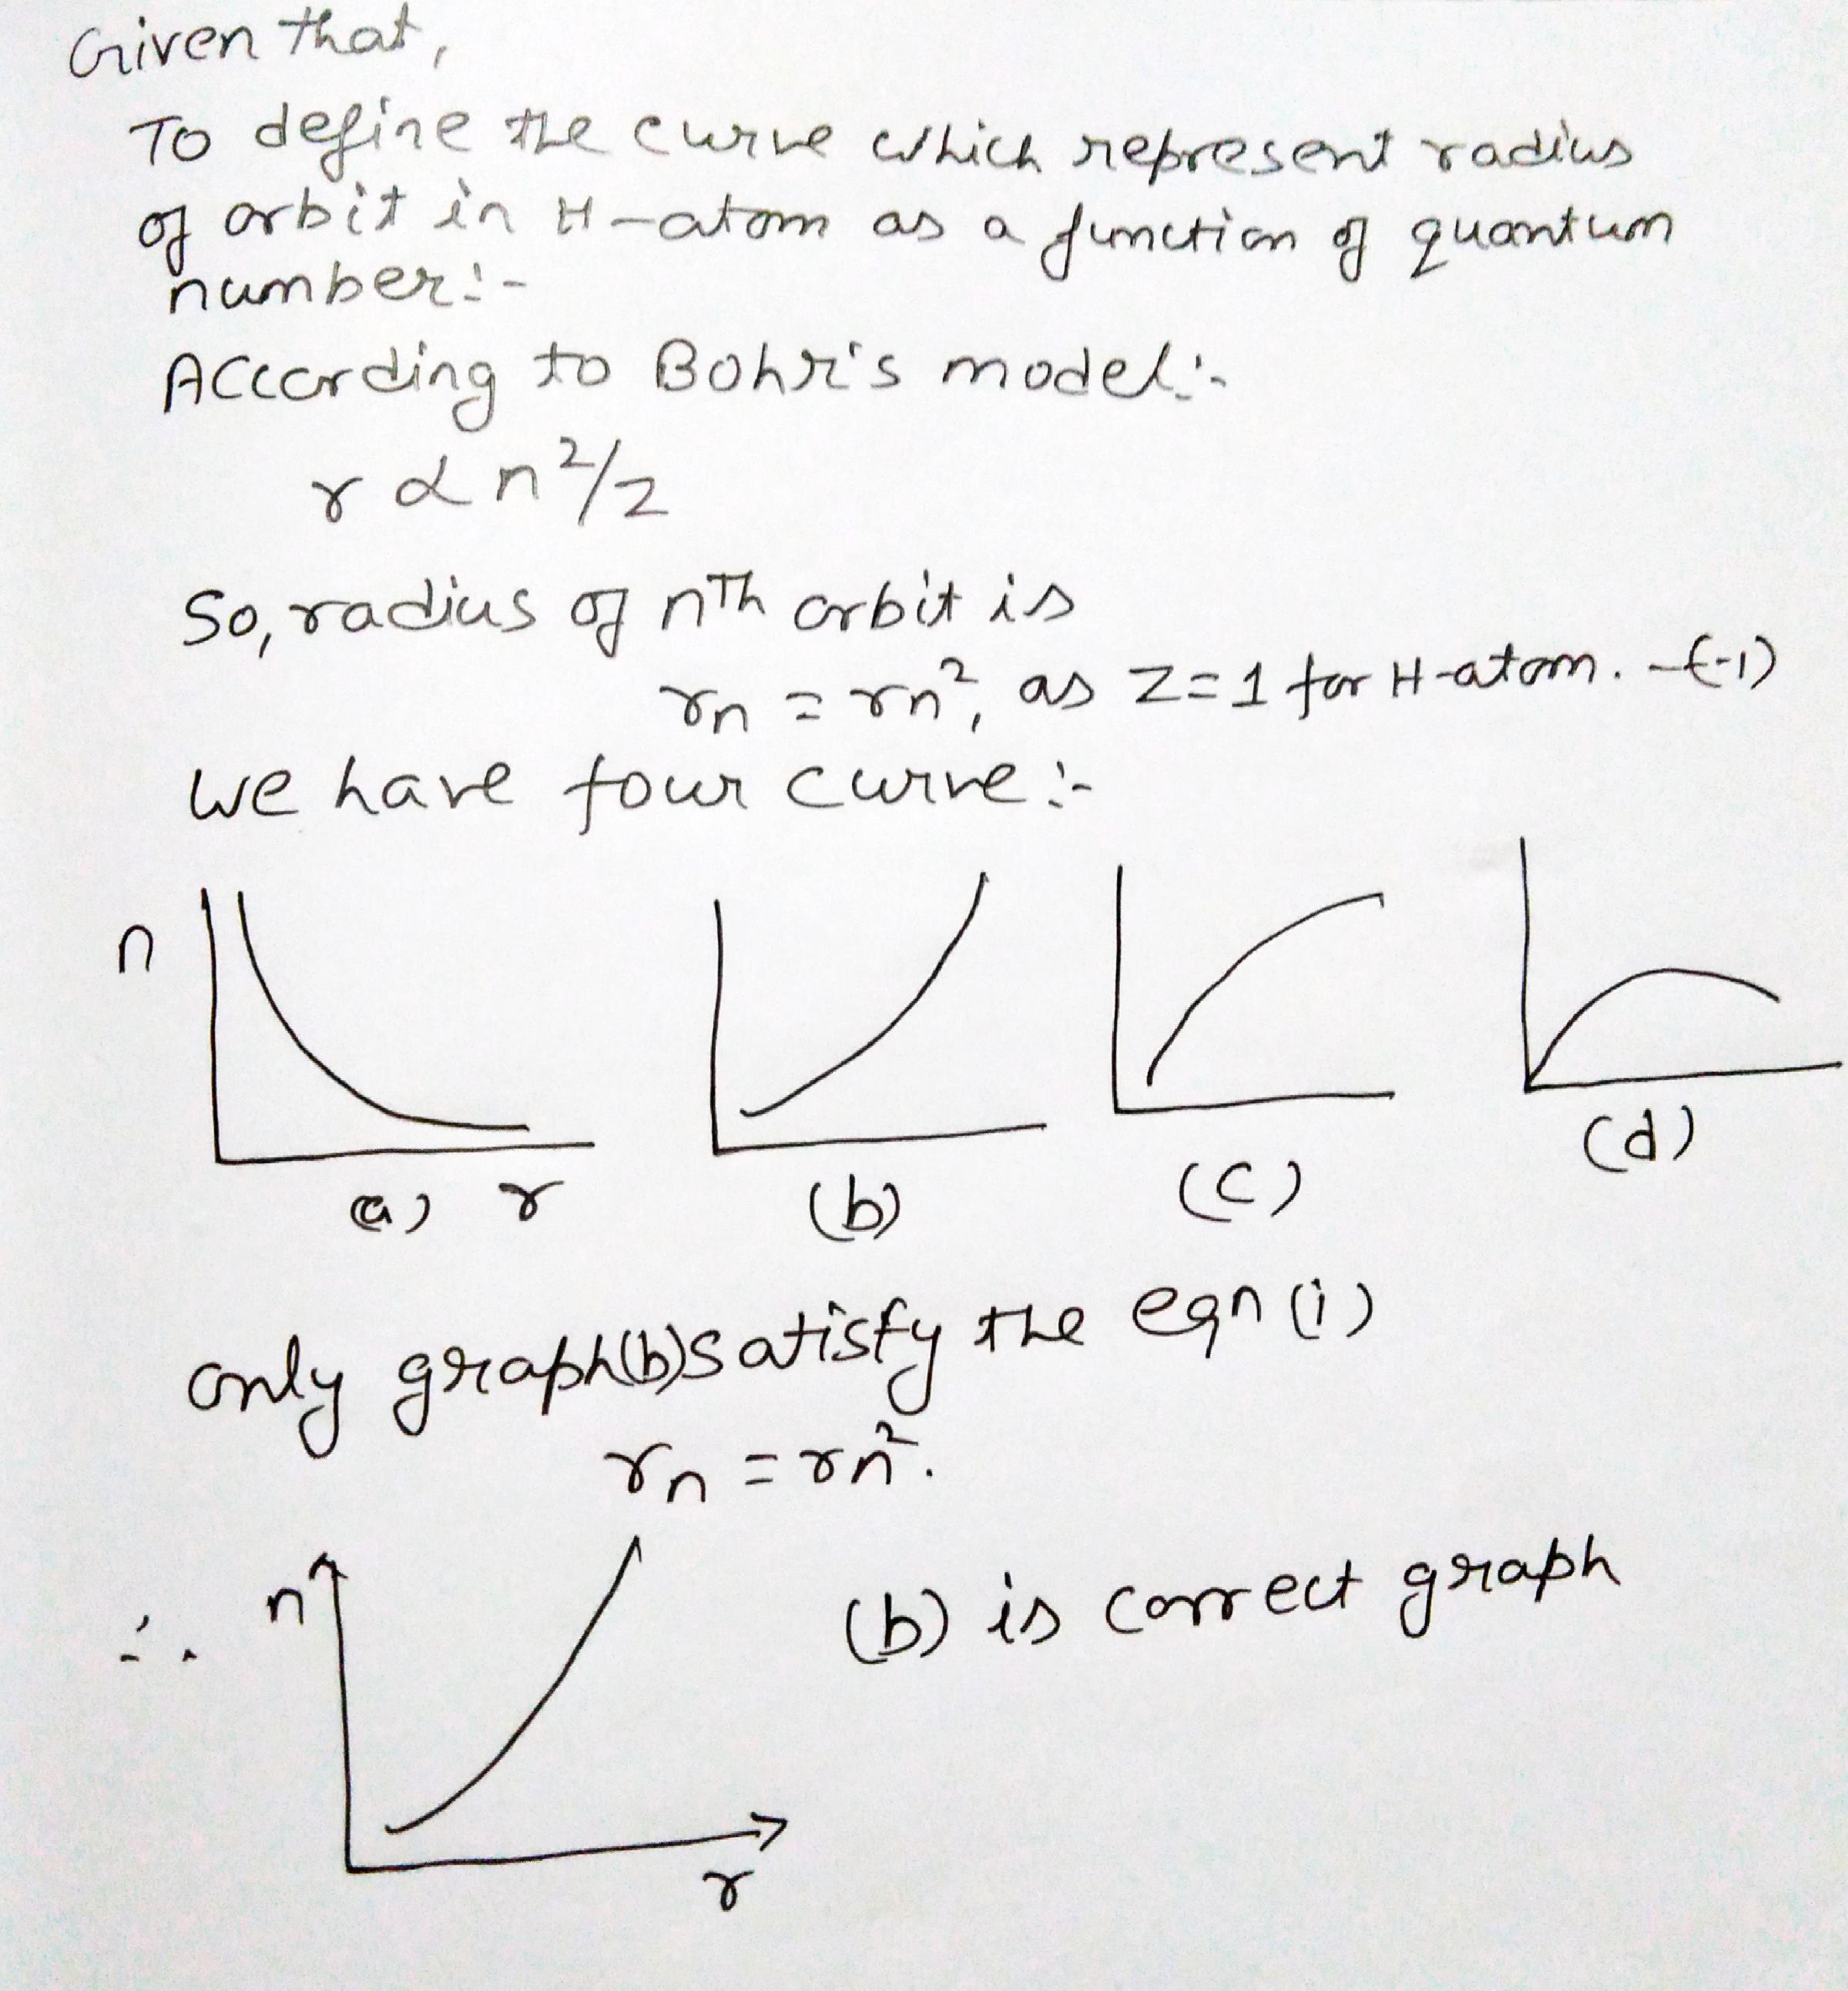 Given that,
To define the curve which represent radius
of orbit in H-atom as a function of quantum
number:-
According to Bohr's model:-
r α n²/z
So, radius of nth orbit is
rn = rn², as Z=1 for H-atom. -(-1)
We have four curve :-
n
(a) r
(b)
(c)
(d)
only graph(b) satisfy the eqn (i)
rn = rn².
∴ n
(b) is correct graph
r